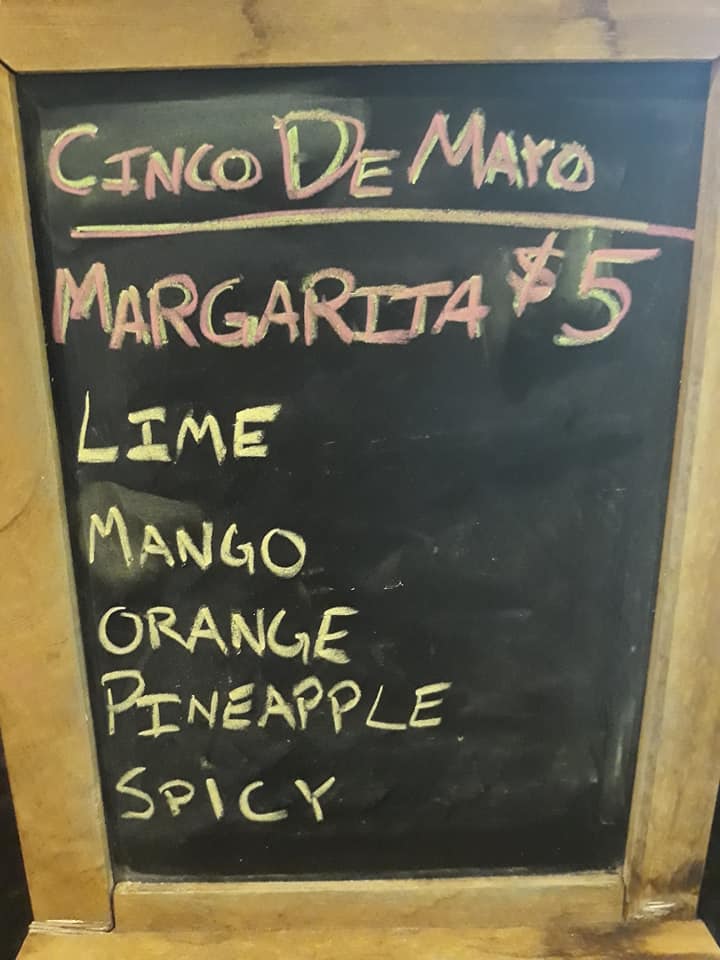 CINCO DE MAYO
MARGARITA $5
LIME
MANGO
ORANGE
PINEAPPLE
SPICY